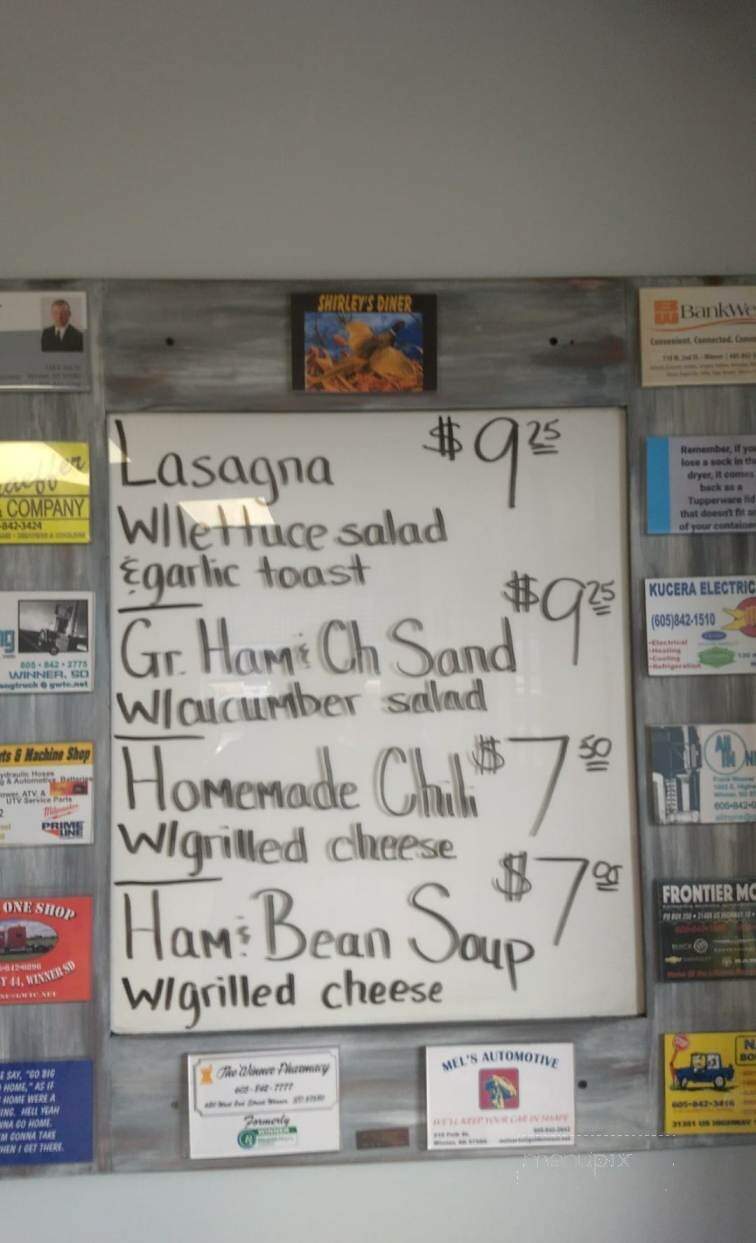 SHIRLEY'S DINER
Lasagna $9 25
W/lettuce salad
& garlic toast
Gr. Ham & Ch Sand $9 25
W/cucumber salad
Homemade Chili $7 50
W/grilled cheese
Ham & Bean Soup $7
W/grilled cheese
& COMPANY
-842-3424
605 · 842 · 2775
WINNER, SD
ts & Machine Shop
ydraulic Hoses
g & Automotive Batteries
ower, ATV, &
UTV Service Parts
Milwaukee
PRIME
LINE
ONE SHOP
Y 44, WINNER SD
E SAY, "GO BIG
HOME," AS IF
HOME WERE A
ING. HELL YEAH
NNA GO HOME.
'M GONNA TAKE
HEN I GET THERE.
BankWe
Convenient. Connected. Comm
Remember, if you
lose a sock in the
dryer, it comes
back as a
Tupperware lid
that doesn't fit an
of your container
KUCERA ELECTRIC
(605)842-1510
•Electrical
•Heating
•Cooling
•Refrigeration
FRONTIER MO
BUICK
CHEVROLET
605-842-3416
31351 US HIGHWAY
The Winner Pharmacy
605-842-7777
Formerly
WINNER
MEL'S AUTOMOTIVE
WE'LL KEEP YOUR CAR IN SHAPE
menupix